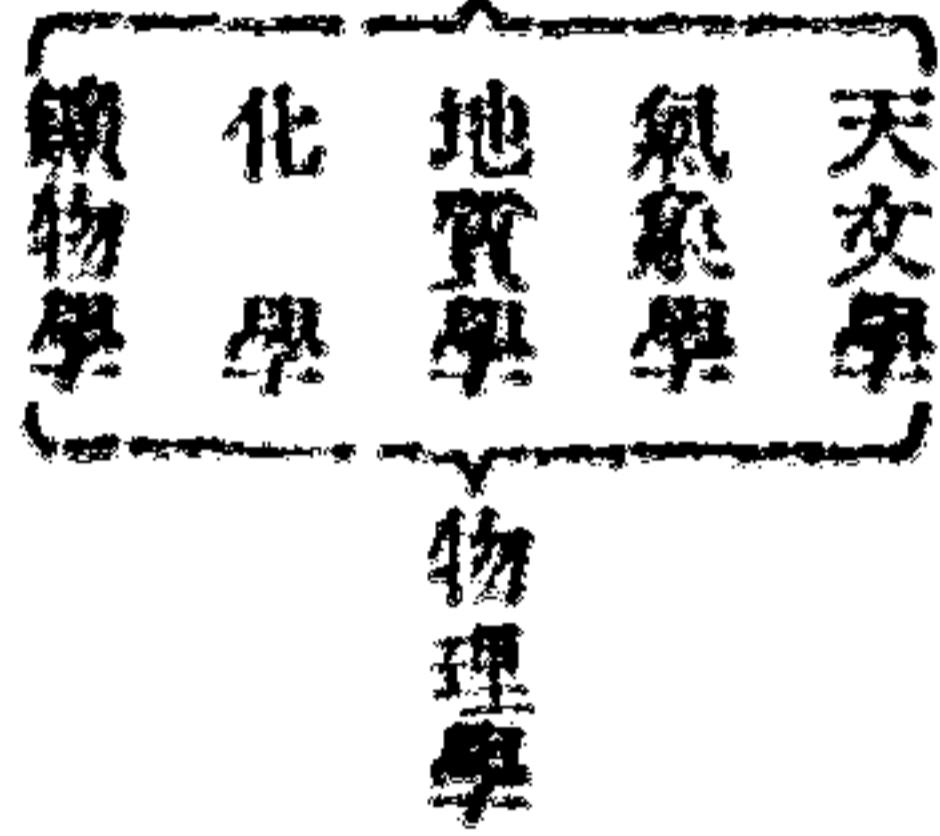 天文學
氣象學
地質學
化學
礦物學
物理學